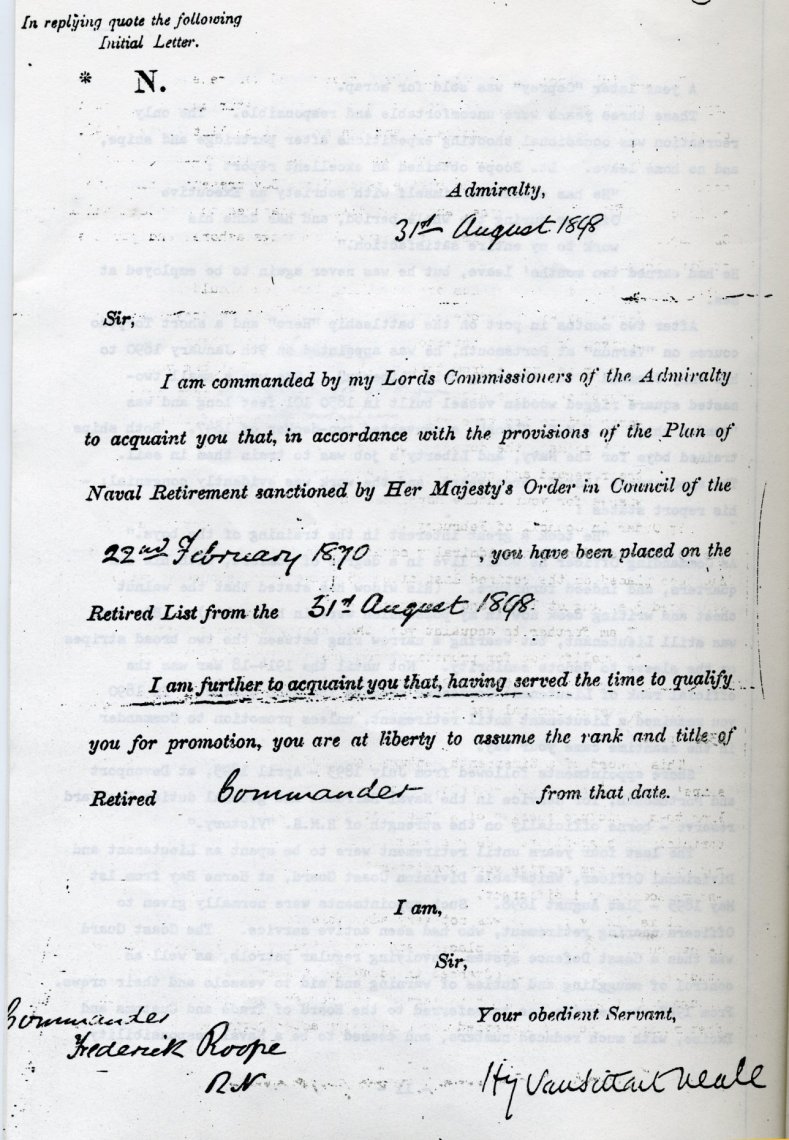 In replying quote the following
Initial Letter.
* N.
Admiralty,
31st August 1898
Sir,
I am commanded by my Lords Commissioners of the Admiralty
to acquaint you that, in accordance with the provisions of the Plan of
Naval Retirement sanctioned by Her Majesty's Order in Council of the
22nd February 1870 , you have been placed on the
Retired List from the 31st August 1898.
I am further to acquaint you that, having served the time to qualify
you for promotion, you are at liberty to assume the rank and title of
Retired Commander from that date.
I am,
Sir,
Your obedient Servant,
Commander
Frederick Roope
RN
Hy Vansittart Neale